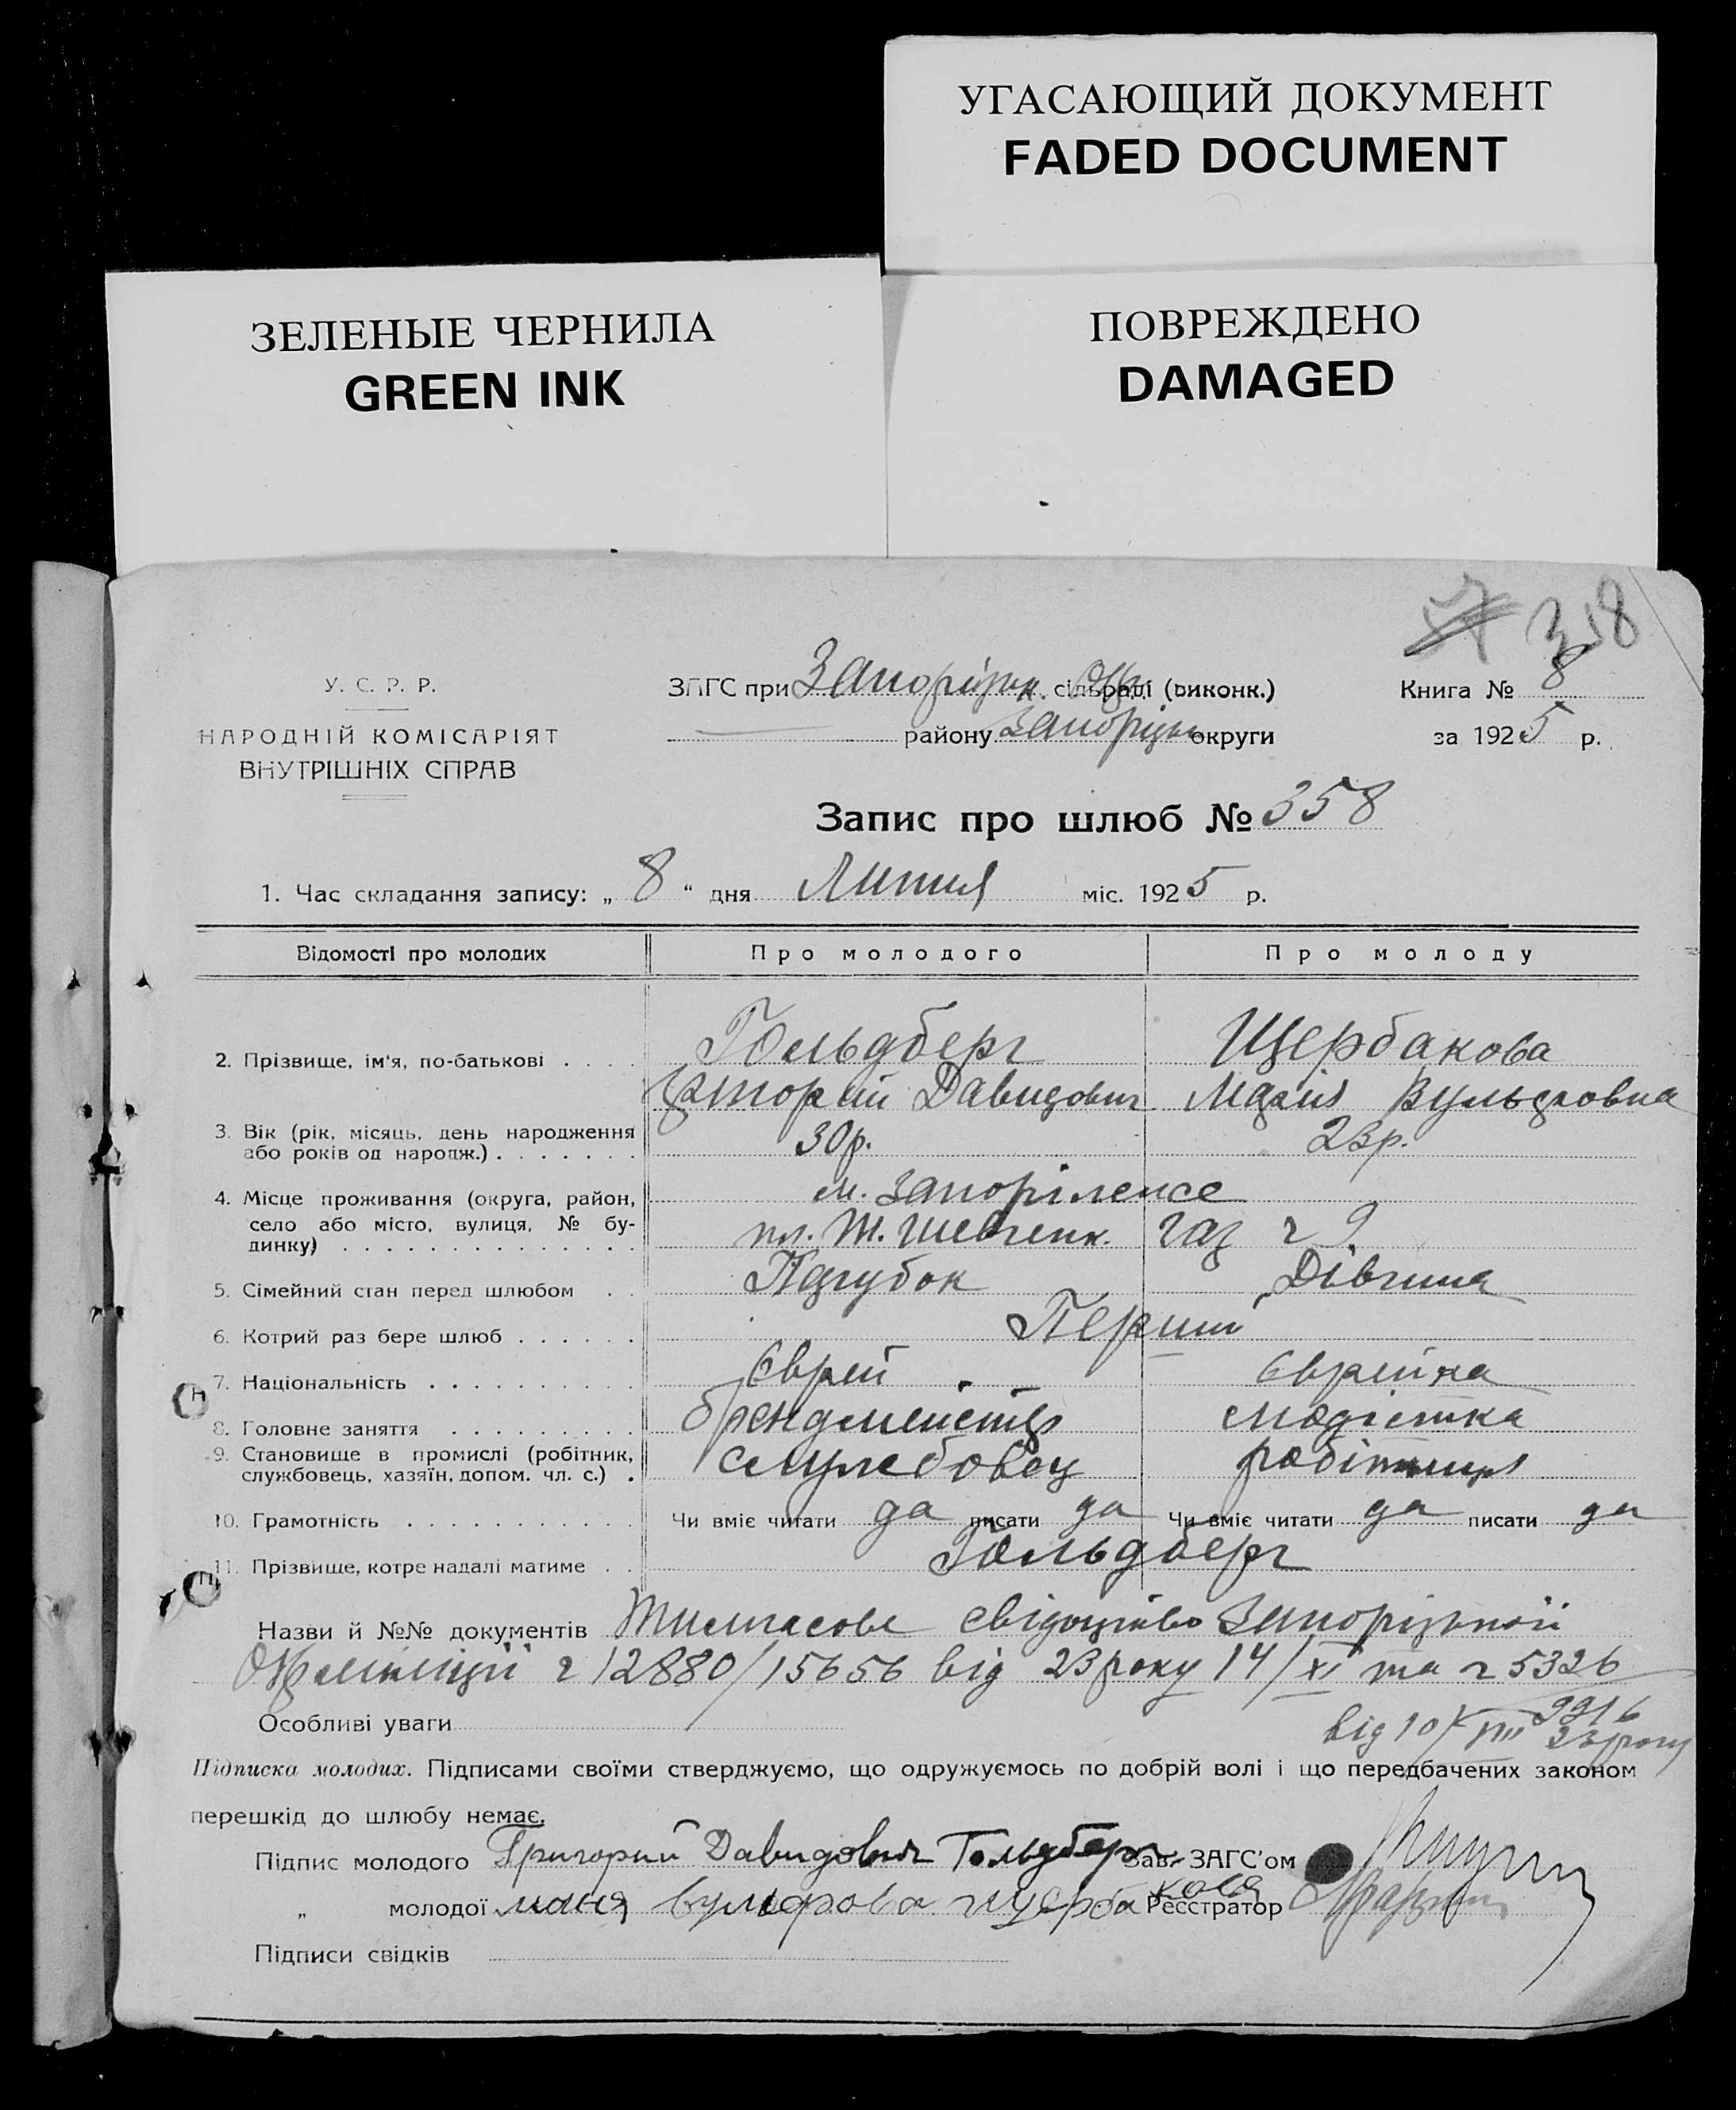 УГАСАЮЩИЙ ДОКУМЕНТ
FADED DOCUMENT
ЗЕЛЕНЫЕ ЧЕРНИЛА
GREEN INK
ПОВРЕЖДЕНО
DAMAGED
358
У. С. Р. Р.
НАРОДНІЙ КОМІСАРІЯТ
ВНУТРІШНІХ СПРАВ
ЗАГС при Запорізьк. сільраді (виконк.)
району Запорізьк округи
Книга № 8
за 1925 р.
Запис про шлюб № 358
1. Час складання запису: „ 8 “ дня Липня міс. 1925 р.
Відомості про молодих Про молодого Про молоду
2. Прізвище, ім'я, по-батькові . . . . Гольдберг Щербакова
Давидович Маня Вульфовна
3. Вік (рік, місяць, день народження
або років од народж.) . . . . . . . 30р. 23р.
4. Місце проживання (округа, район,
село або місто, вулиця, № бу-
динку) . . . . . . . . . . . . . . м. Запоріжжє
пл. Т. Шевченк. ч 9
5. Сімейний стан перед шлюбом . . Парубок Дівчина
6. Котрий раз бере шлюб . . . . . . Перший
7. Національність . . . . . . . . . . Єврей Єврейка
8. Головне заняття . . . . . . . . . брендмейстер модістка
9. Становище в промислі (робітник,
службовець, хазяїн, допом. чл. с.) . службовец робітниця
10. Грамотність . . . . . . . . . . . Чи вміє читати да писати да Чи вміє читати да писати да
11. Прізвище, котре надалі матиме . . Гольдберг
Назви й №№ документів Тимчасове свідоцтво Запорізької
Окрміліції ч 12880/15656 від 23 року 14/XI та ч 5326
Особливі уваги
від 10/VIII 23 року
Підписка молодих. Підписами своїми стверджуємо, що одружуємось по добрій волі і що передбачених законом
перешкід до шлюбу немає.
Підпис молодого Григорий Давидович Гольдберг Зав. ЗАГС'ом
„ молодої маня вульфова щербакова Реєстратор
Підписи свідків